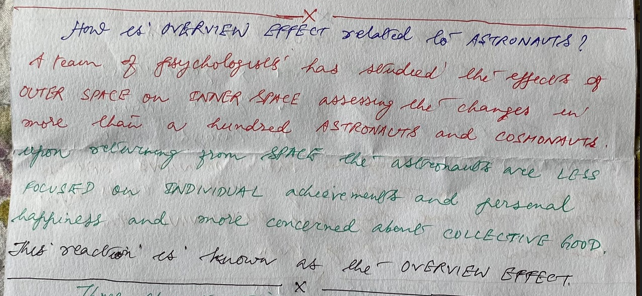 x
How is OVERVIEW EFFECT related to ASTRONAUTS?
A team of psychologists has studied the effects of
OUTER SPACE on INNER SPACE assessing the changes in
more than a hundred ASTRONAUTS and COSMONAUTS.
upon returning from SPACE the astronauts are LESS
FOCUSED on INDIVIDUAL achievements and personal
happiness and more concerned about COLLECTIVE GOOD.
This reaction is known as the OVERVIEW EFFECT.
x